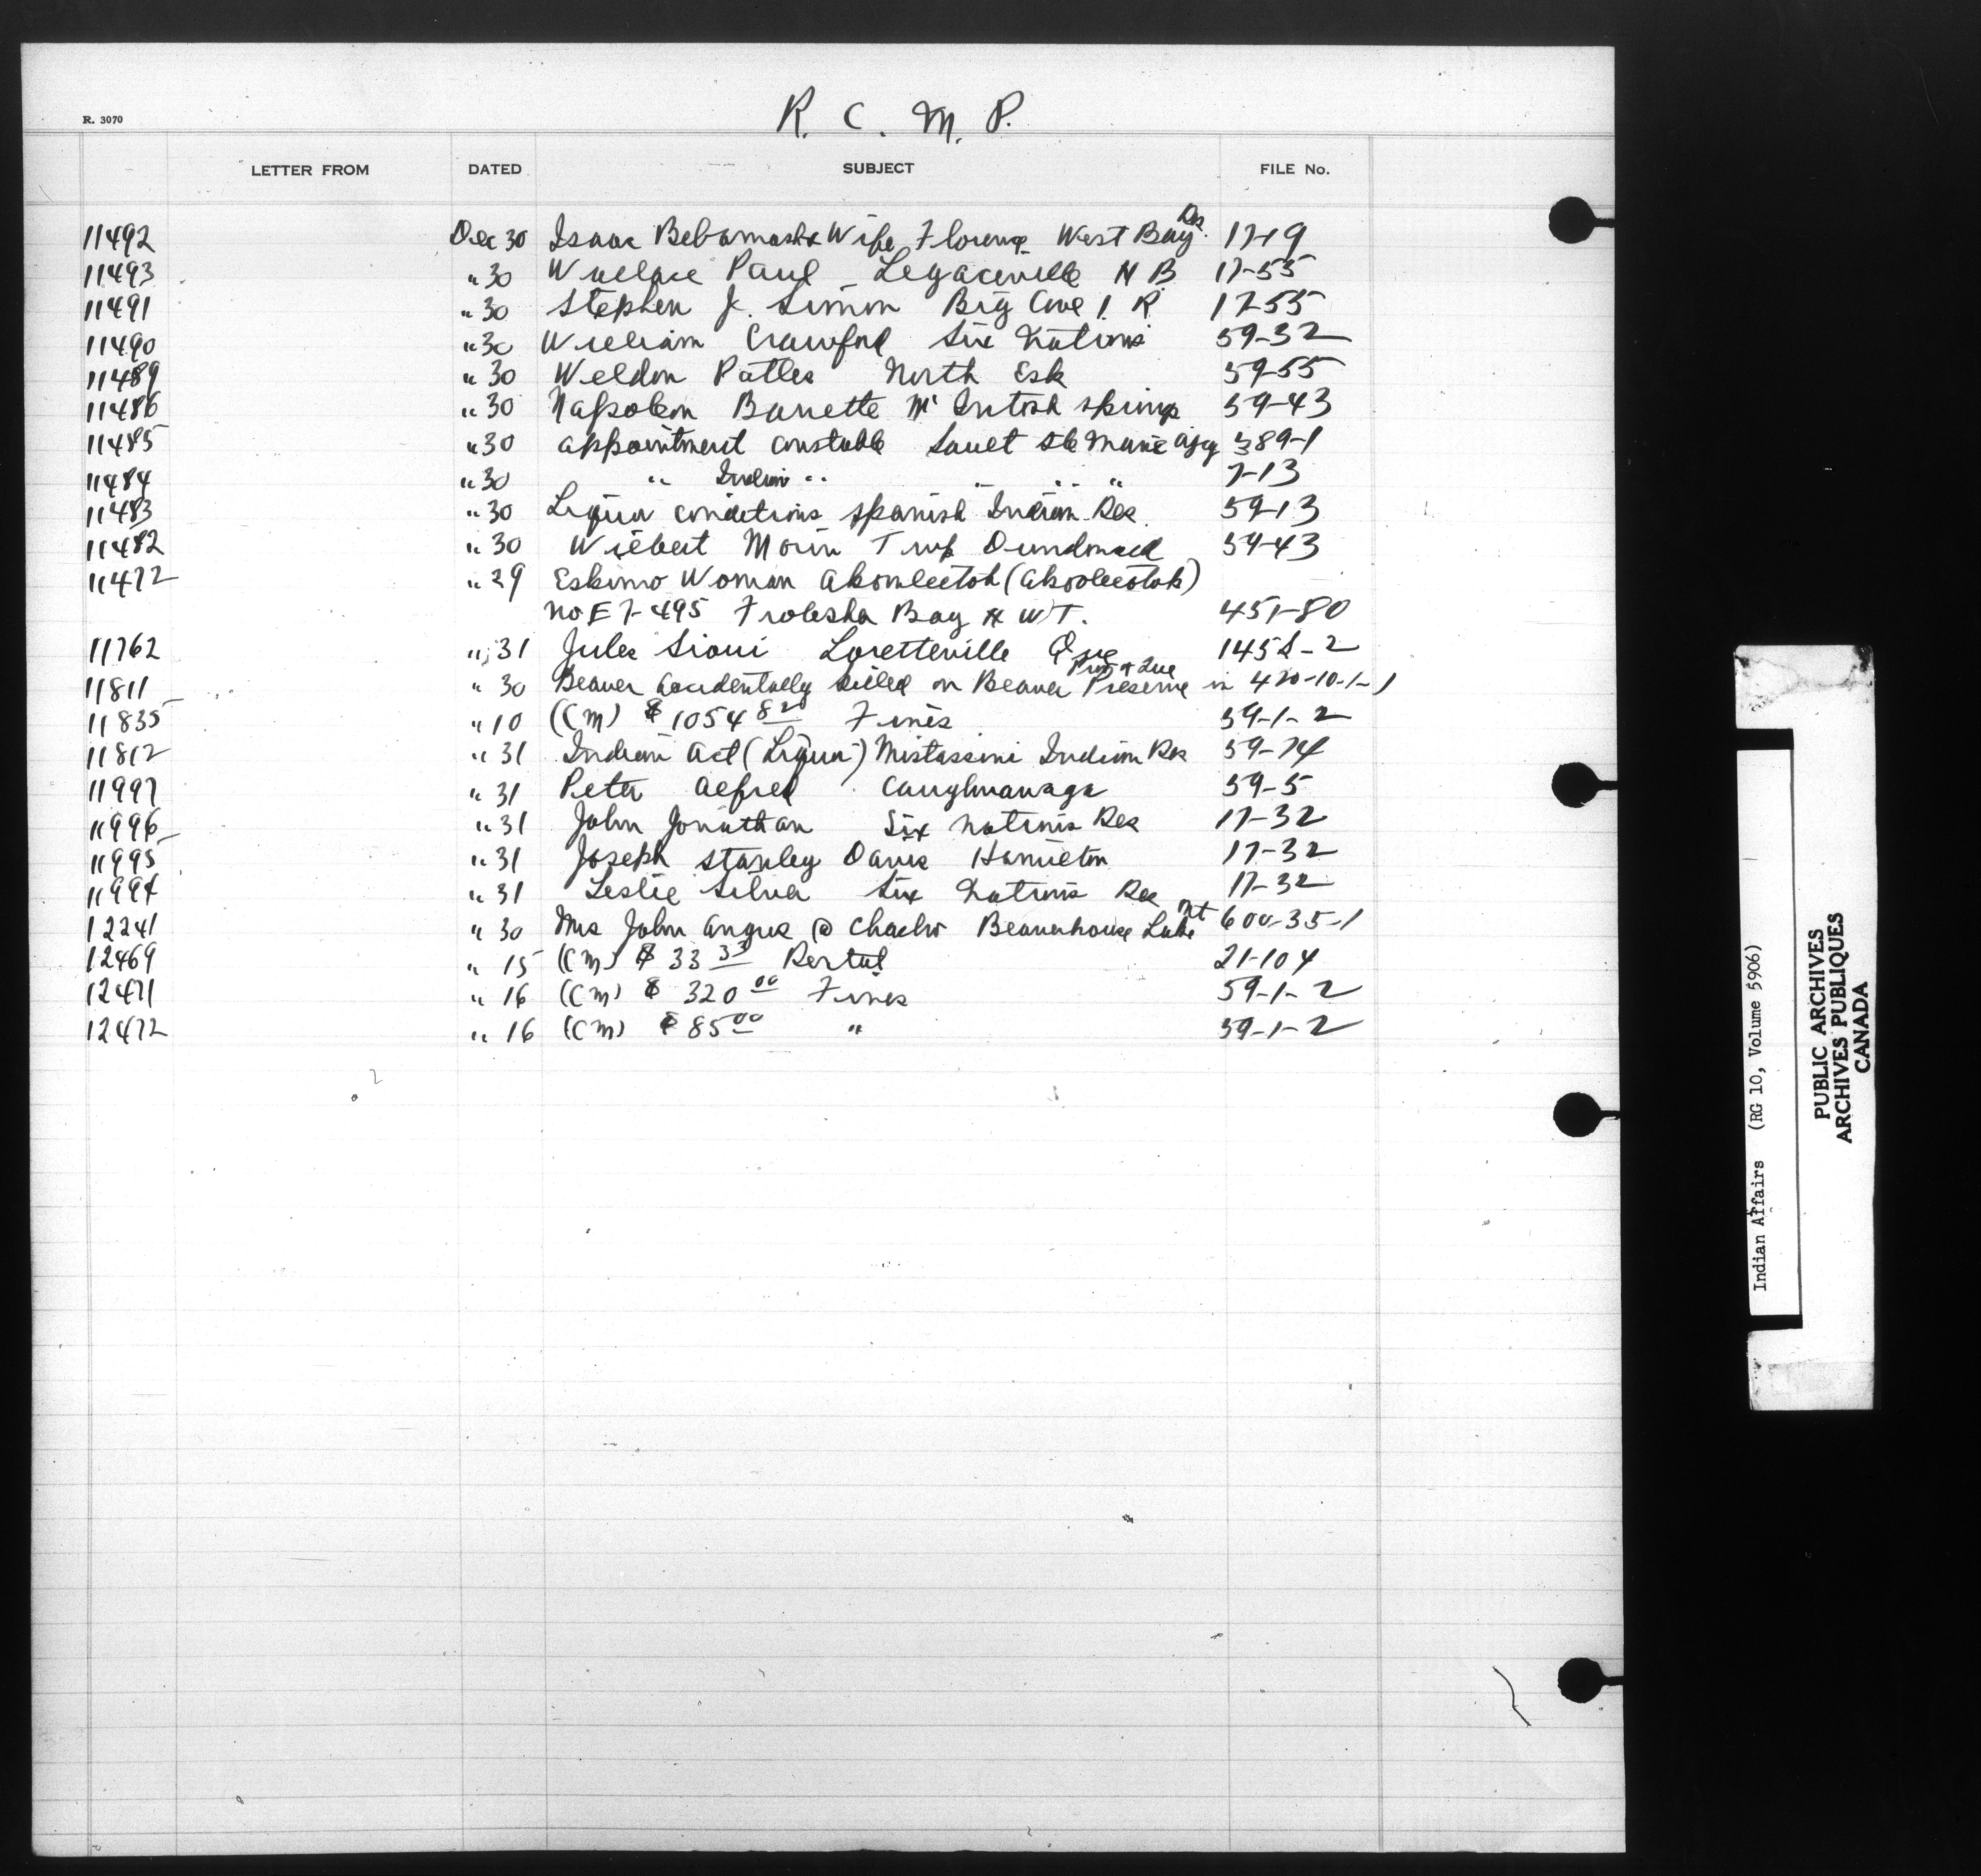 R. C. M. P.
R. 3070
LETTER FROM DATED SUBJECT FILE No.
11492 Dec 30 Isaac Bebamash & Wife Florence West Bay Res. 17-19
11493 " 30 Wallace Paul Legaceville N B 17-55
11491 " 30 Stephen J. Simon Big Cove I. R. 17-55
11490 " 30 William Crawford Six Nations 59-32
11489 " 30 Weldon Patles North Esk 59-55
11486 " 30 Napoleon Barrette McIntosh Springs 59-43
11485 " 30 appointment constable Sault Ste Marie agy 389-1
11484 " 30 " Indian " " " " 7-13
11483 " 30 Liquor conditions Spanish Indian Res. 59-13
11482 " 30 Wilbert Morin Twp Dundonald 59-43
11472 " 29 Eskimo Woman Akomleetok (Akooleeotok)
No E7-495 Frobisha Bay N WT. 451-80
11762 " 31 Jules Sioui Loretteville Que 1458-2
11811 " 30 Beaver accidentally killed on Beaver Preserve in Prov of Que 420-10-1-1
11835 " 10 (CM) $ 1054 820 Fines 59-1-2
11812 " 31 Indian Act (Liquor) Mistassini Indian Res 59-74
11997 " 31 Peter Alfred Caughnawaga 59-5
11996 " 31 John Jonathan Six Nations Res 17-32
11995 " 31 Joseph Stanley Davis Hamilton 17-32
11994 " 31 Leslie Silver Six Nations Res 17-32
12241 " 30 Mrs John Angus @ Beaverhouse Lake Ont 600-35-1
12469 " 15 (CM) $ 33 33 Rental 21-104
12471 " 16 (CM) $ 320 00 Fines 59-1-2
12472 " 16 (CM) $ 85 00 " 59-1-2
Indian Affairs (RG 10, Volume 5906)
PUBLIC ARCHIVES
ARCHIVES PUBLIQUES
CANADA